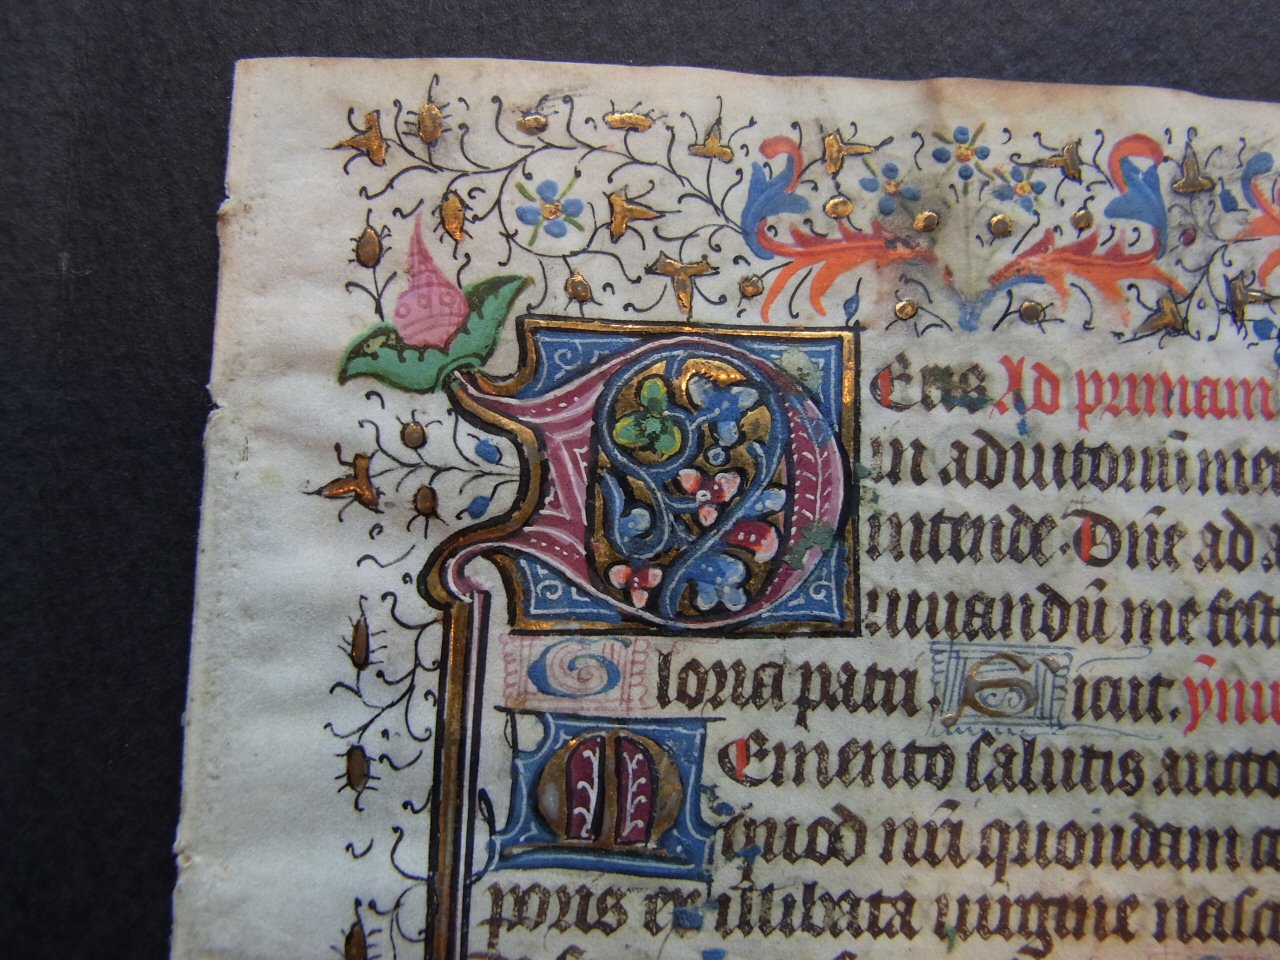 DEus Ad primam
in adiutoriū me
intende. Dn̄e ad a
iuuandū me fest
Gloria patri. Sicut. ym
MEmento salutis aucto
quod nr̄i quondam
poris ex illibata uirgine nasc